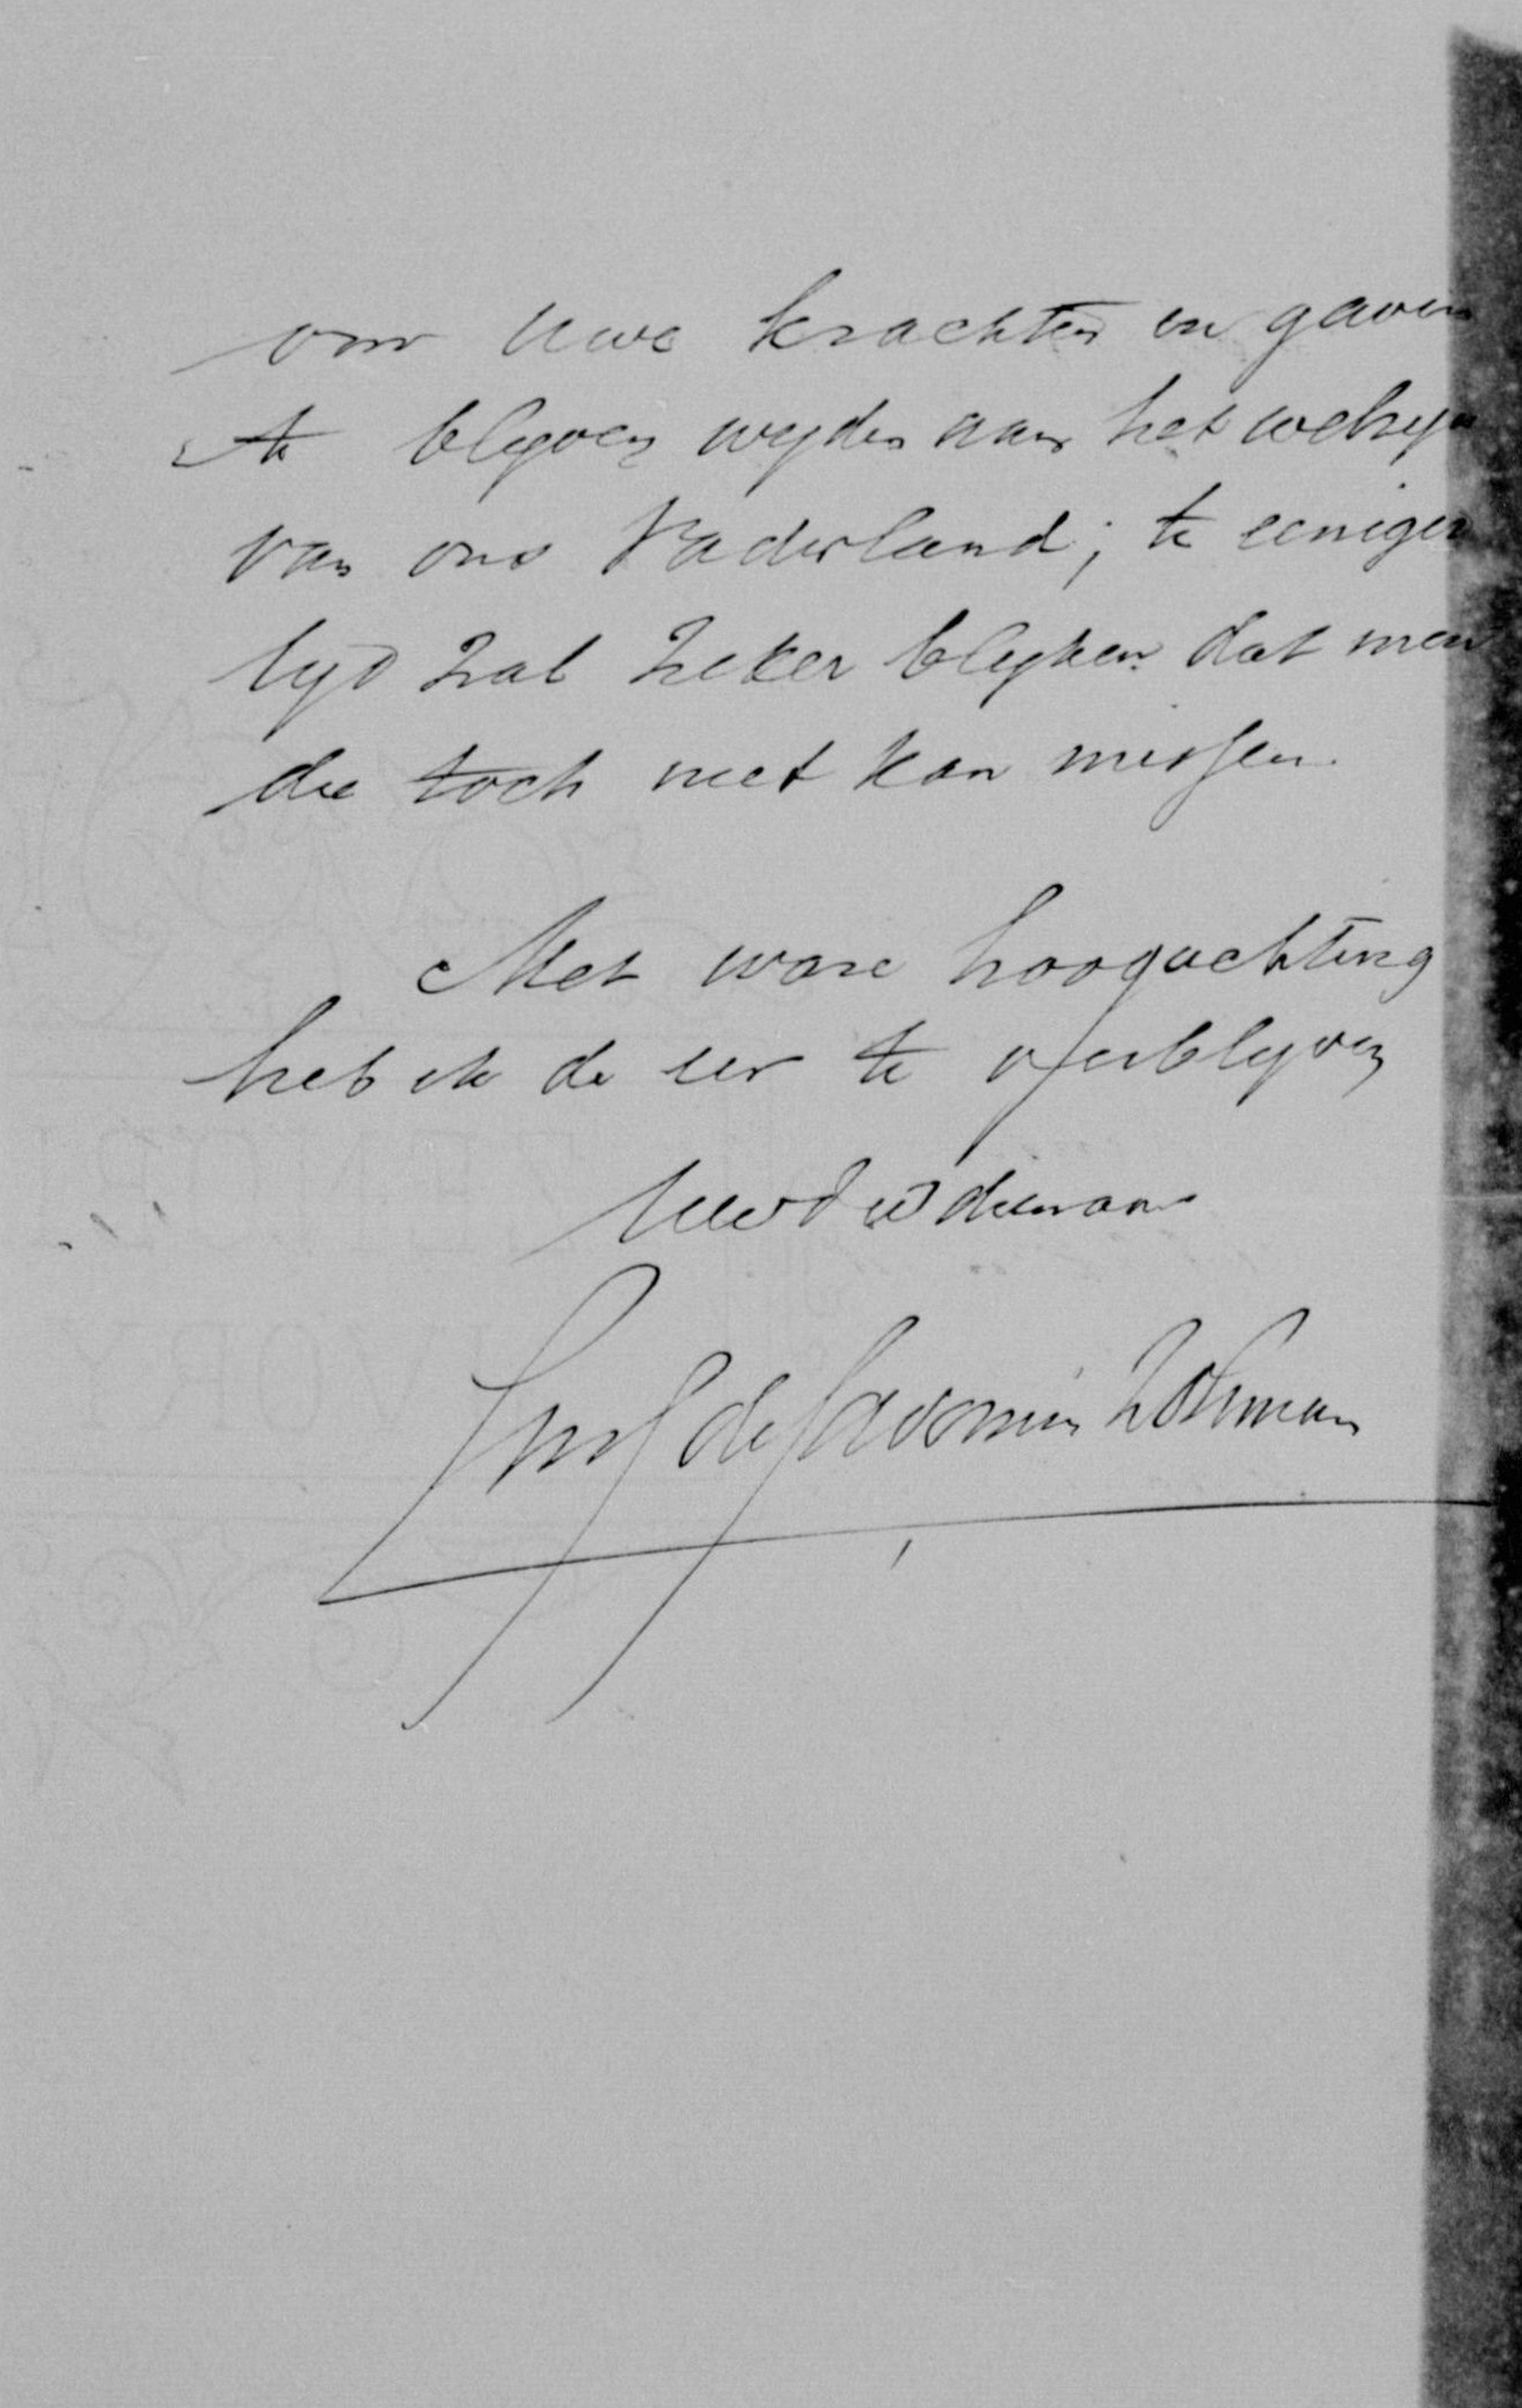 om Uwe krachten en gaven
te blijven wijden aan het welzijn
van ons Vaderland; te eeniger
tijd zal zeker blijken dat men
die toch niet kan missen.
Met ware hoogachting
heb ik de eer te verblijven
UEd dw dienaar
de Savornin Lohman